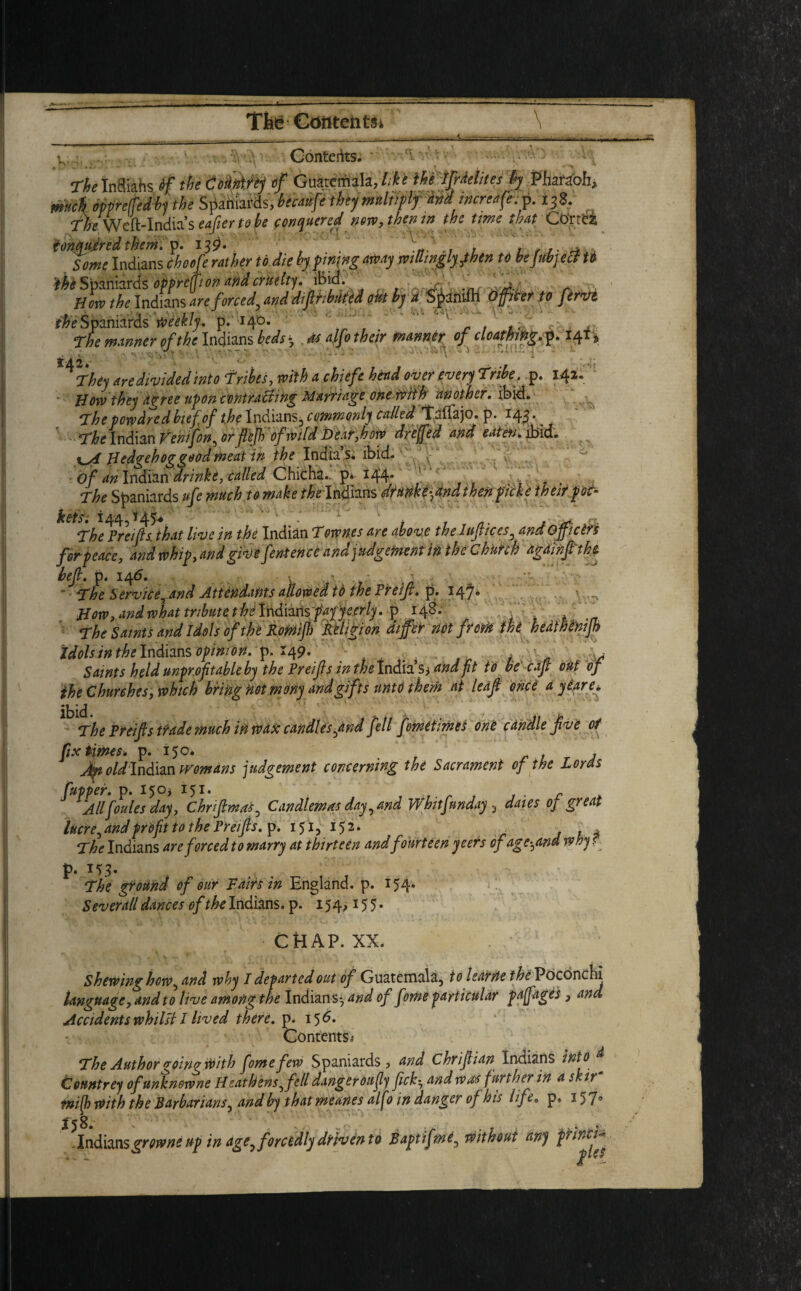 The Contents.
Contents.
The Indiahs of the Countrey of Guatemala, like the Israelites by Pharaoh,
much oppressed by the Spaniards, because they multiply and increase. p. 138.
The West-India's easier to be conquered now, then in the time that Cortez
conquered them. p. 139.
Some Indians choose rather to die by pining away willingly, then to be subject to
the Spaniards oppression and cruelty. ibid.
How the Indians are forced, and distributed out by a Spanish Officer to serve
the Spaniards weekly. p. 140.
The manner of the Indians beds; as also their manner of cloathing. p. 141,
142.
They are divided into Tribes, with a chiefe head over every Tribe. p. 142.
How they agree upon contracting Marriage one with another. ibid.
The powdred bief of the Indians, commonly called Tassajo. p. 143.
The Indian Venison, or flesh of wild Dear, how dressed and eaten. ibid.
A Hedgehog good meat in the India's. ibid.
Of an Indian drinke, called Chicha. p. 144.
The Spaniards use much to make the Indians drunke, and then picke their poc-
kets. 144, 145.
The Preists that live in the Indian Townes are above the Justices, and Officers
for peace, and whip, and give sentence and judgement in the Church against the
best. p. 146.
The Service, and Attendants allowed to the Preist. p. 147.
How, and what tribute the Indians pay yeerly. p 148.
The Saints and Idols of the Romish Religion differ not from the heathenish
Idols in the Indians opinion. p. 149.
Saints held unprofitable by the Preists in the India's, and fit to be cast out of
the Churches, which bring not mony and gifts unto them at least once a yeare.
ibid.
The Preists trade much in wax candles, and sell sometimes one candle five or
six times. p. 150.
An old Indian womans judgement concerning the Sacrament of the Lords
supper. p. 150, 151.
All soules day, Christmas, Candlemas day, and Whitsunday, daies of great
lucre, and profit to the Preists. p. 151, 152.
The Indians are forced to marry at thirteen and fourteen yeers of age; and why?
p. 153.
The ground of our Fairs in England. p. 154.
Severall dances of the Indians. p. 154, 155.
CHAP. XX.
Shewing how, and why I departed out of Guatemala, to learne the Poconchi
language, and to live among the Indians; and of some particular passages, and
Accidents whilst I lived there. p. 156.
Contents.
The Author going with some few Spaniards, and Christian Indians into a
Countrey of unknowne Heathens, fell dangerously sick; and was further in a skir-
mish with the Barbarians, and by that meanes also in danger of his life. p. 157.
158.
Indians growne up in age, forcedly driven to Baptisme, without any princi-
ples